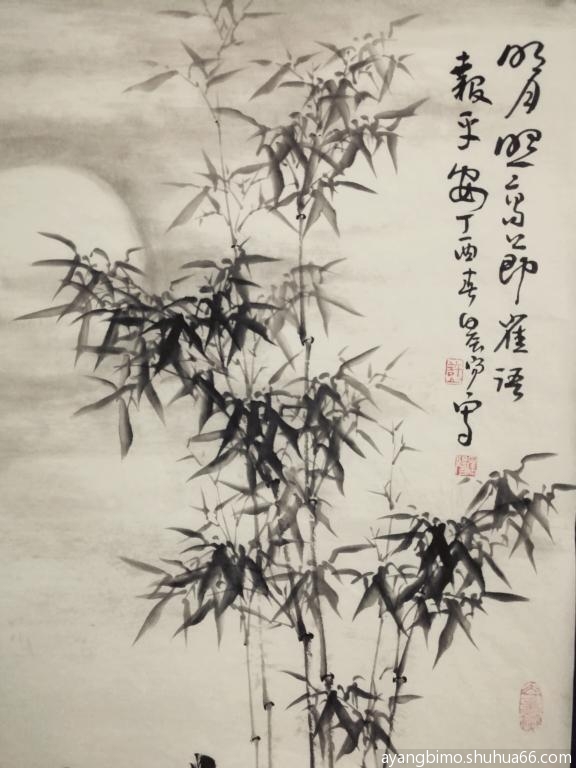 明月照高节雀语
報平安丁酉春日晨曦写
ayangbimo.shuhua66.com